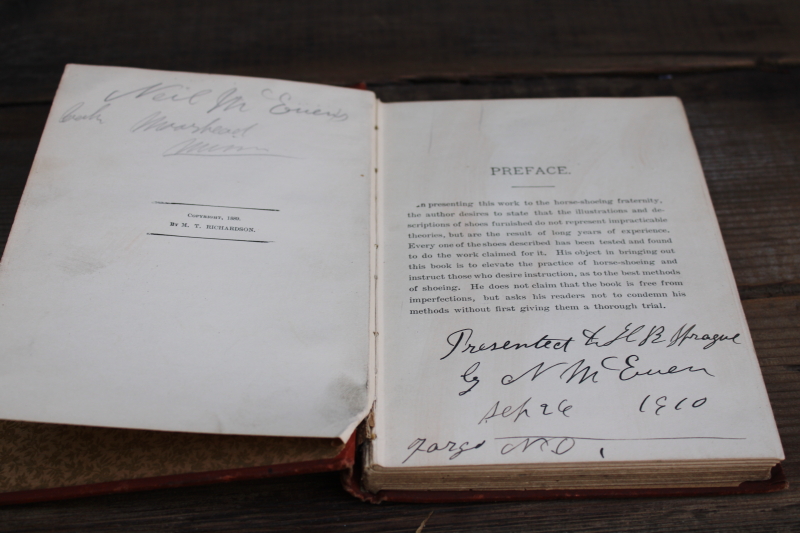 Neil McEuen's
book Moorhead
Minn
COPYRIGHT, 1890,
BY M. T. RICHARDSON.
PREFACE.
In presenting this work to the horse-shoeing fraternity,
the author desires to state that the illustrations and de-
scriptions of shoes furnished do not represent impracticable
theories, but are the result of long years of experience.
Every one of the shoes described has been tested and found
to do the work claimed for it. His object in bringing out
this book is to elevate the practice of horse-shoeing and
instruct those who desire instruction, as to the best methods
of shoeing. He does not claim that the book is free from
imperfections, but asks his readers not to condemn his
methods without first giving them a thorough trial.
Presented to H B Sprague
by N McEuen
Sep 26 1910
Fargo N D